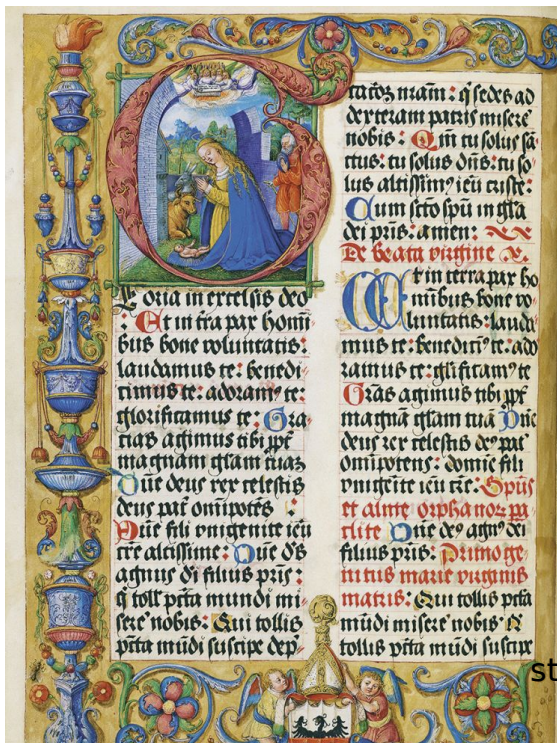 G
loria in excelsis deo
: Et in tra pax homi
bus bone voluntatis:
laudamus te: benedi
cimus te: adoramus te:
glorificamus te: Gra
tias agimus tibi ppt
magnam gliam tuam
Dne deus rex celestis
deus pat omipotes
Dne fili vnigenite ieu
cre altissime: Dne ds
agnus di filius pris:
q toll pcta mundi mi
sere nobis: Qui tollis
pcta mudi suscipe dep
catoz nram: q sedes ad
dexteram patris misere
nobis: Qm tu solus sa
ctus: tu solus dns: tu so
lus altissim9 ieu criste:
Cum scto spu in gla
dei pris: amen:
De beata virgine
Et in terra pax ho
minibus bone vo
luntatis: lauda
mus te: benedicim9 te: ado
ramus te: glificam9 te
Gras agimus tibi ppt
magna glam tua Dne
deus rex celestis de9 pat
omipotens: domie fili
vnigenite ieu cre: Spus
et alme orphanoz pa
clite Dne de9 agn9 dei
filius pris: Primoge
nitus marie virginis
matris: Qui tollis pcta
mudi misere nobis: Q
tollis pcta mudi suscipe
st